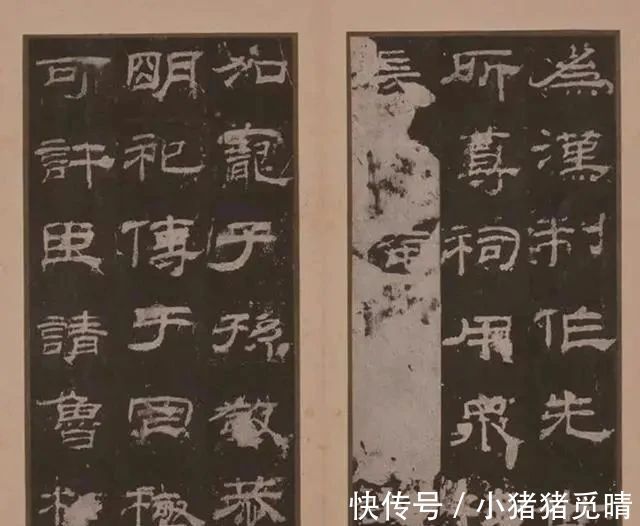 為漢制作先
所尊祠用眾
長
加寵子孫敬恭
明祀傳于罔極
可許臣請魯相
快传号 / 小猪猪觅晴